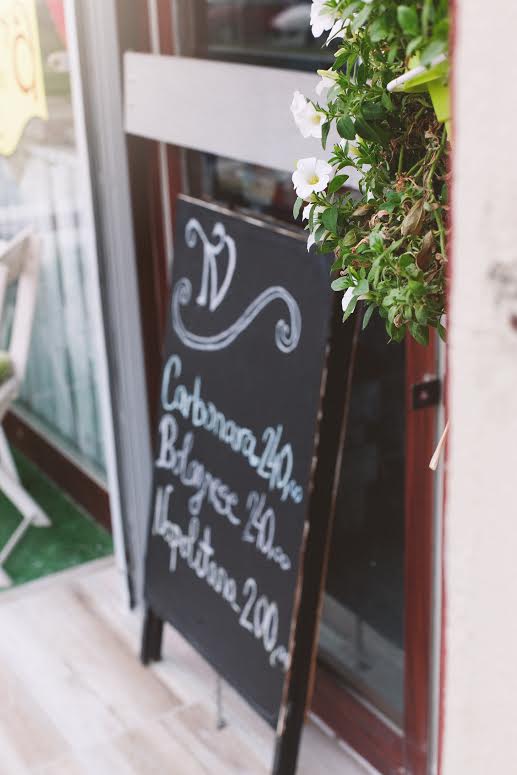 Carbonara 240,00
Bolognese 240,00
Napolitana 200,00